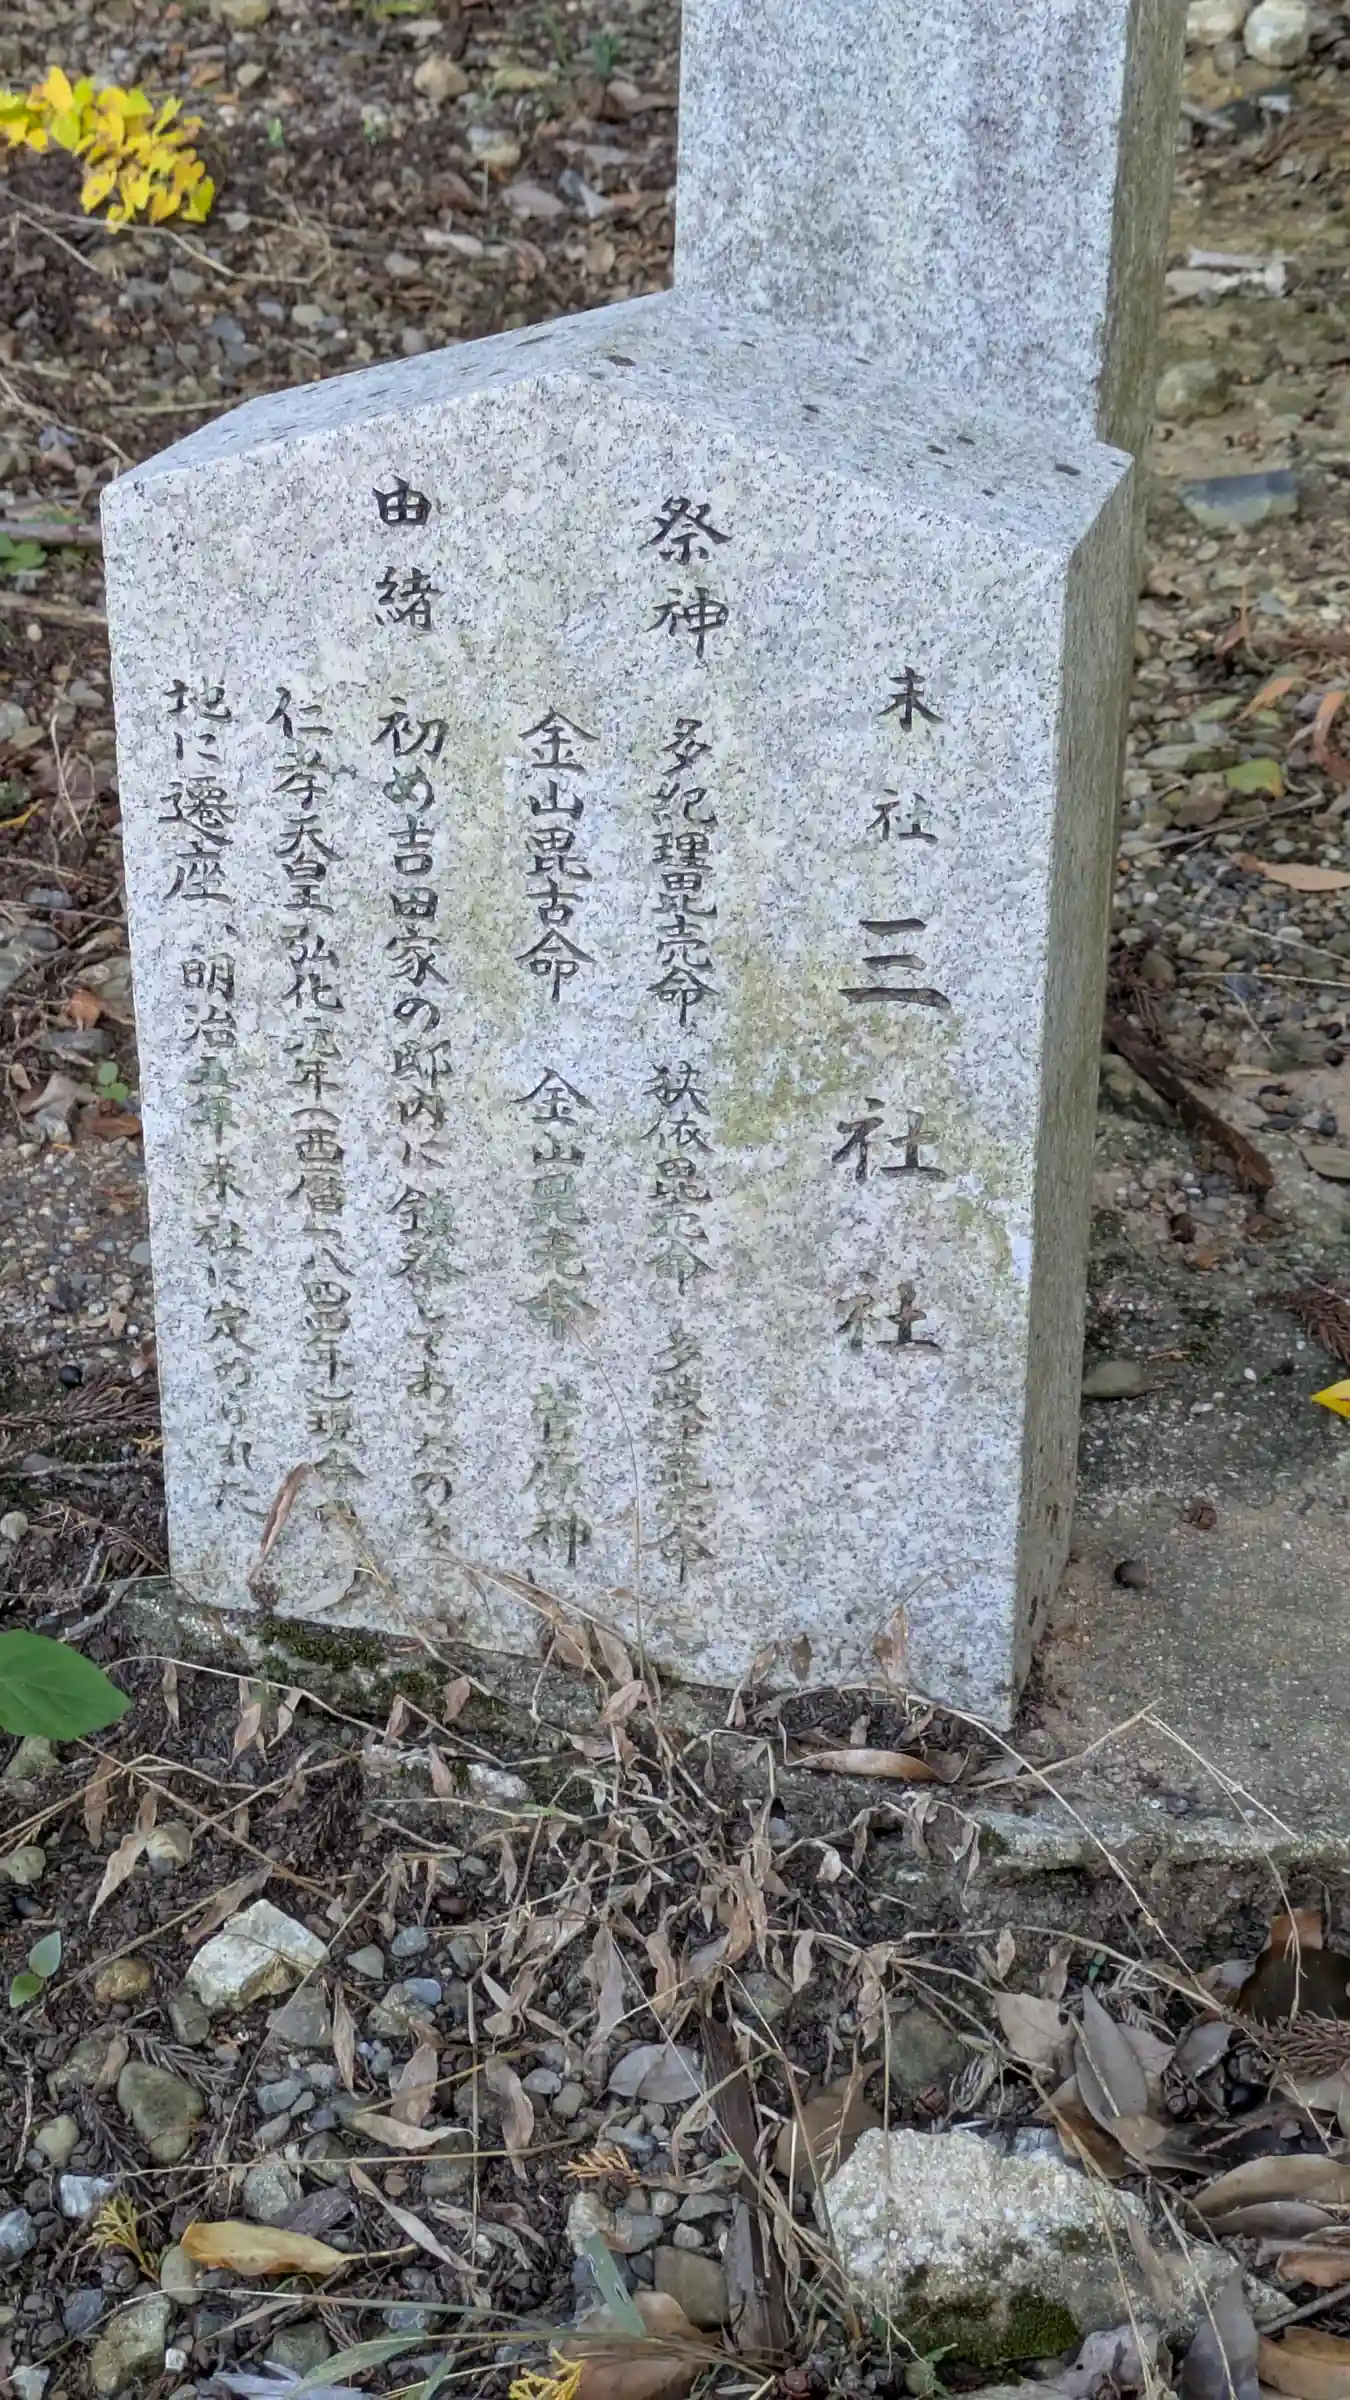 末社 三社社
祭神 多紀理毘売命 狭依毘売命 多岐津毘売命
金山毘古命 金山毘売命 菅原神
由緒 初め吉田家の邸内に鎮祭してあったのを
仁孝天皇弘化元年(西暦一八四四年)現今
地に遷座、明治五年末社に定められた